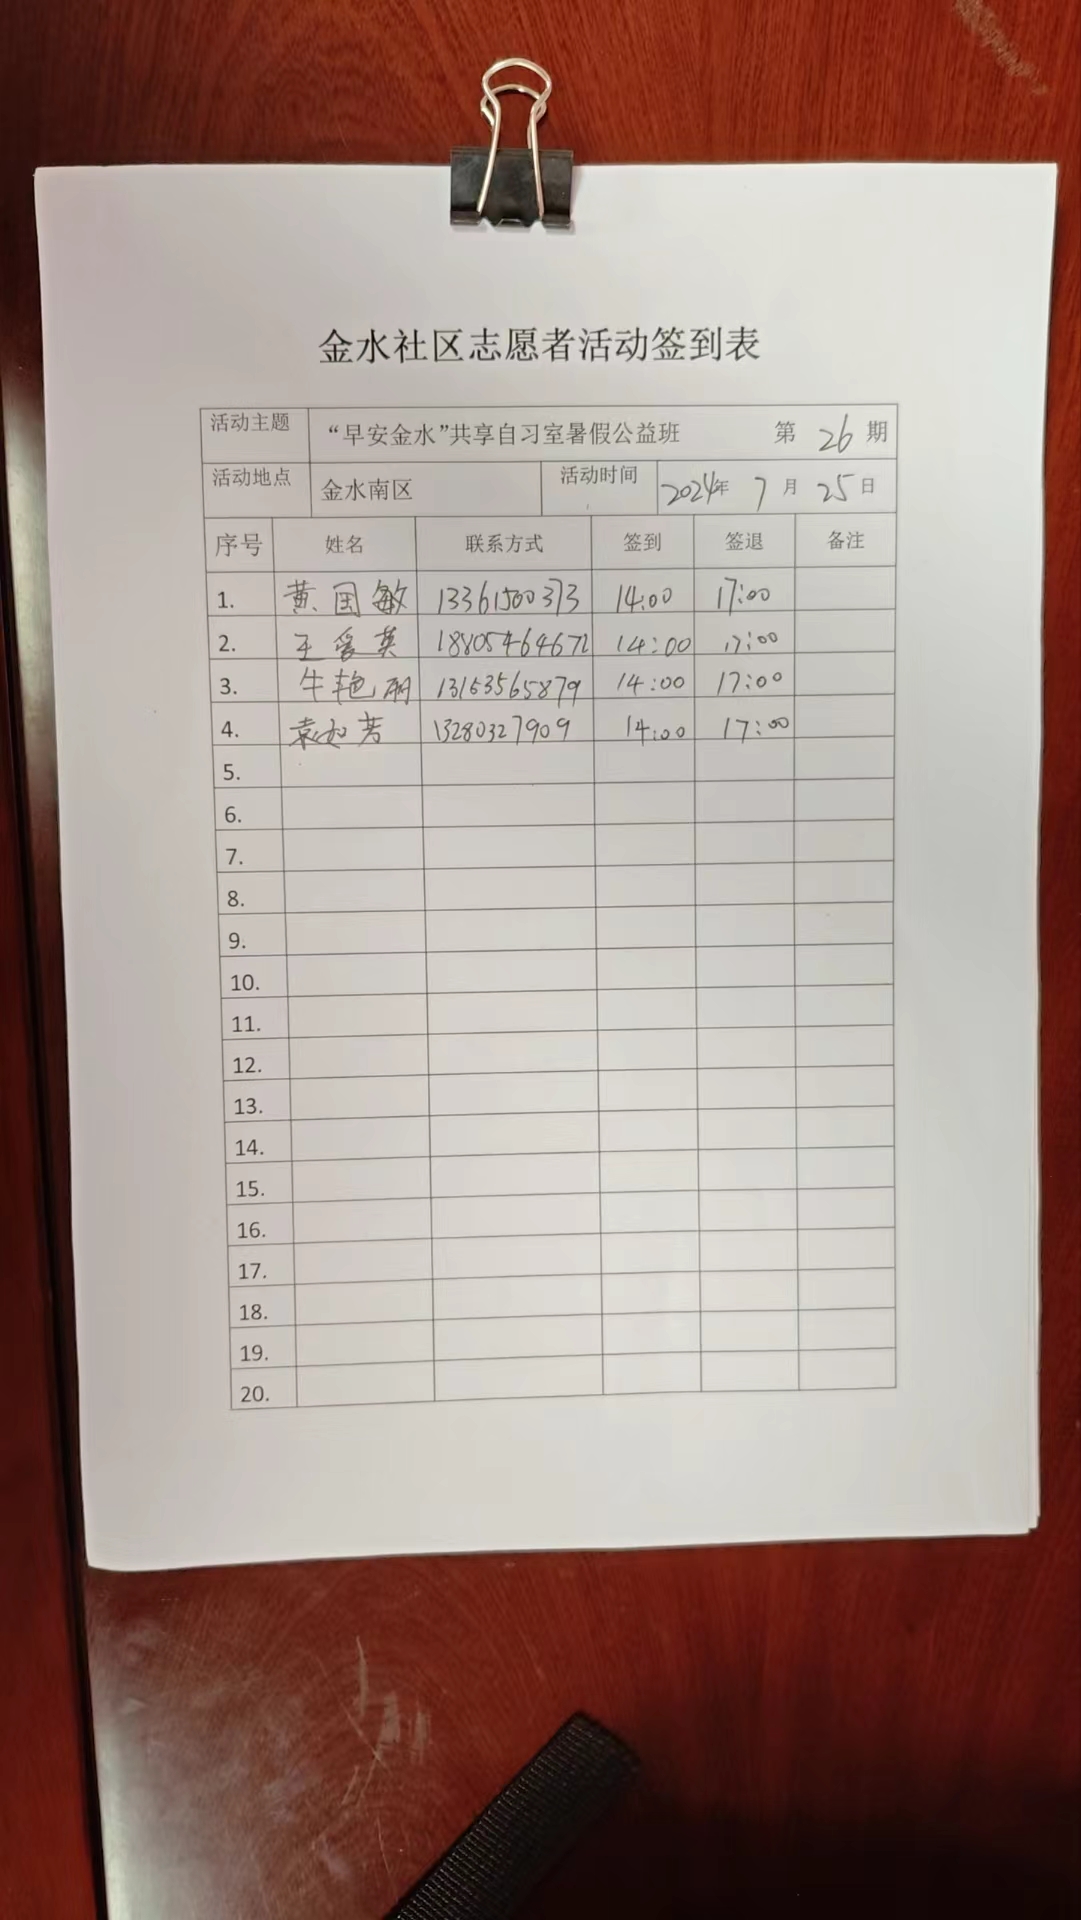 金水社区志愿者活动签到表
活动主题 “早安金水”共享自习室暑假公益班 第 26 期
活动地点 金水南区 活动时间 2024年 7 月 25 日
序号 姓名 联系方式 签到 签退 备注
1. 黄国敏 13361500373 14:00 17:00
2. 王爱英 18805464672 14:00 17:00
3. 牛艳丽 13163565879 14:00 17:00
4. 袁如芳 13280327909 14:00 17:00
5.
6.
7.
8.
9.
10.
11.
12.
13.
14.
15.
16.
17.
18.
19.
20.